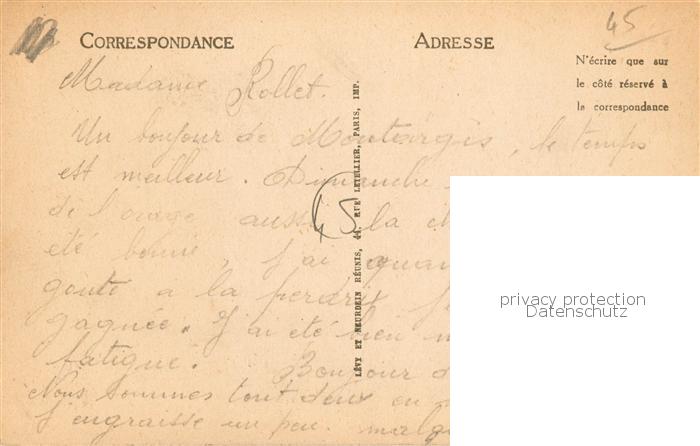 45
CORRESPONDANCE
ADRESSE
N'écrire que sur
le côté réservé à
la correspondance
Madame Rollet.
Un bonjour de Montargis, le temps
est meilleur. Dimanche
de l'orage aussi la
été bonne, J'ai quan
gouté a la perdrix
gagnée. J'ai été bien
fatigue. Bonjour d
Nous sommes tout deux en
J'engraisse un peu. malg
45
LÉVY ET NEURDEIN RÉUNIS, 44, RUE LETELLIER, PARIS, IMP.
privacy protection
Datenschutz